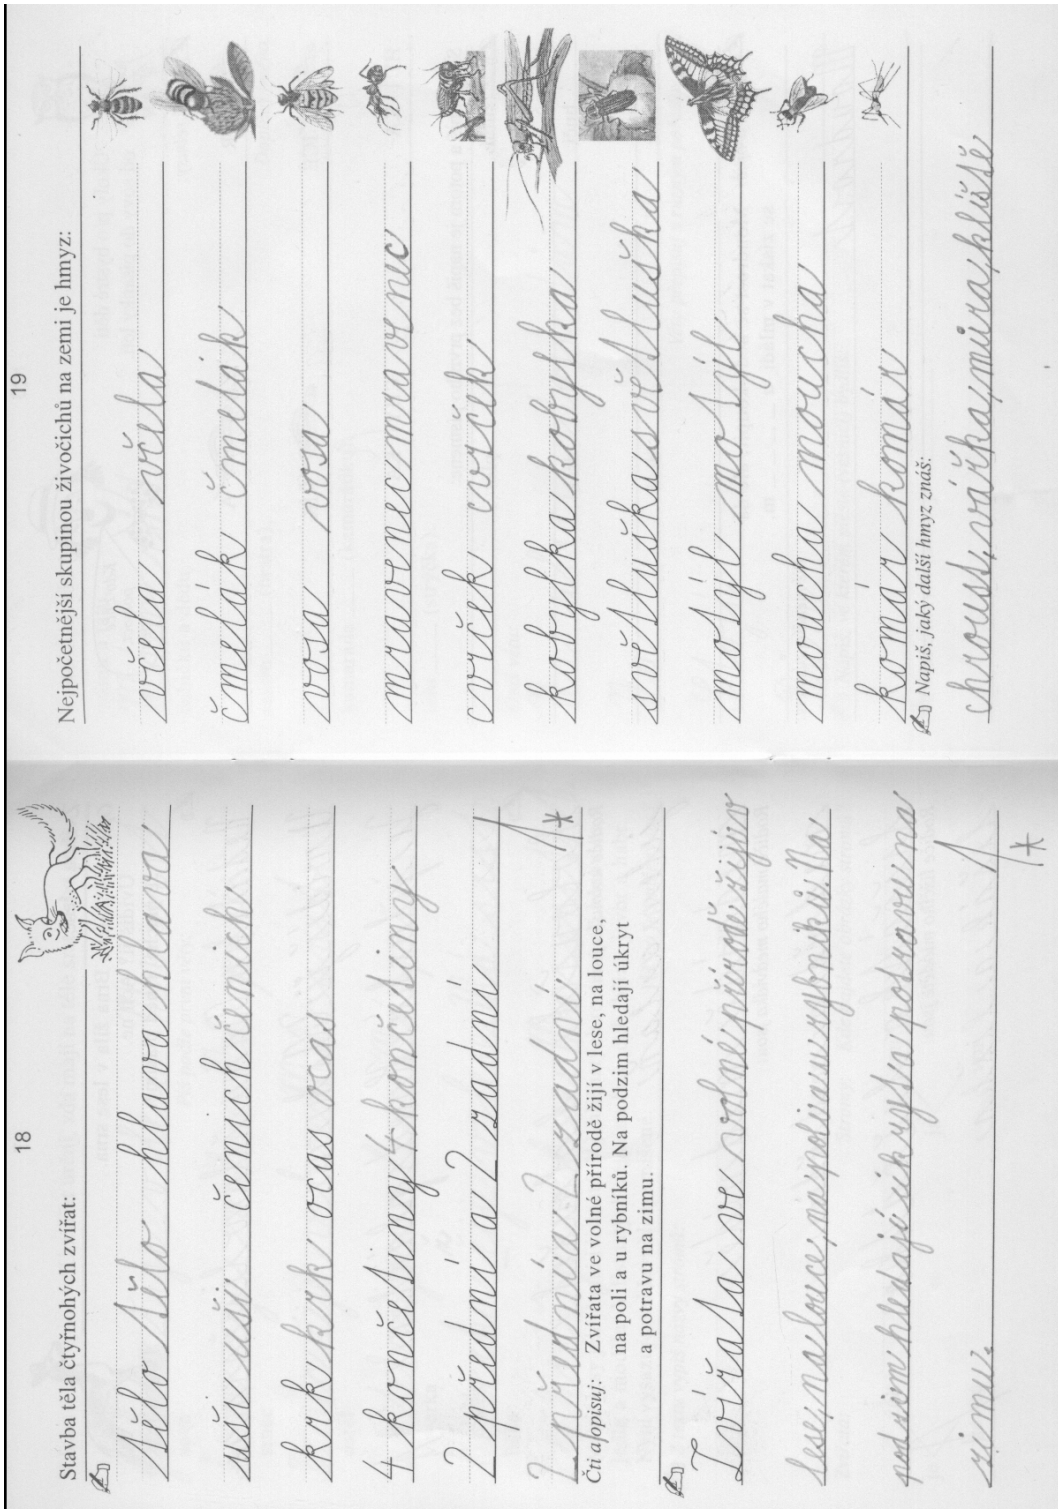 18
Stavba těla čtyřnohých zvířat:
tělo tělo hlava hlava
uši uši čenich čenich
krk krk ocas ocas
4 končetiny 4 končetiny
2 přední a 2 zadní
2 přední a 2 zadní
1*
Čti a opisuj: Zvířata ve volné přírodě žijí v lese, na louce,
na poli a u rybníků. Na podzim hledají úkryt
a potravu na zimu.
Zvířata ve volné přírodě žijí v
lese, na louce, na poli a u rybníků. Na
podzim hledají úkryt a potravu na
zimu.
1*
19
Nejpočetnější skupinou živočichů na zemi je hmyz:
včela včela
čmelák čmelák
vosa vosa
mravenec mravenec
cvrček cvrček
kobylka kobylka
světluška světluška
motýl motýl
moucha moucha
komár komár
Napiš, jaký další hmyz znáš:
chroust, vážka, můra, klíště